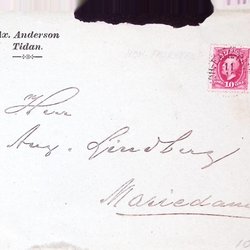 Ax. Anderson
Tidan.
Herr
Aug. Lindberg
Mariedamm
10